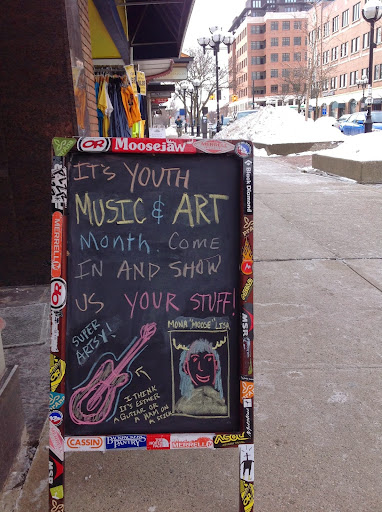 OR Moosejaw
IT'S YOUTH
MUSIC & ART
Month Come
IN AND SHOW
US YOUR STUFF!
SUPER
ARTSY!
MONA "MOOSE" LISA
I THINK
IT'S EITHER
A GUITAR OR
A HAM ON
A STICK
Black Diamond
MERRELL
OR
MSR
CASSIN BACKPACKER'S PANTRY MERRELL ASOLO